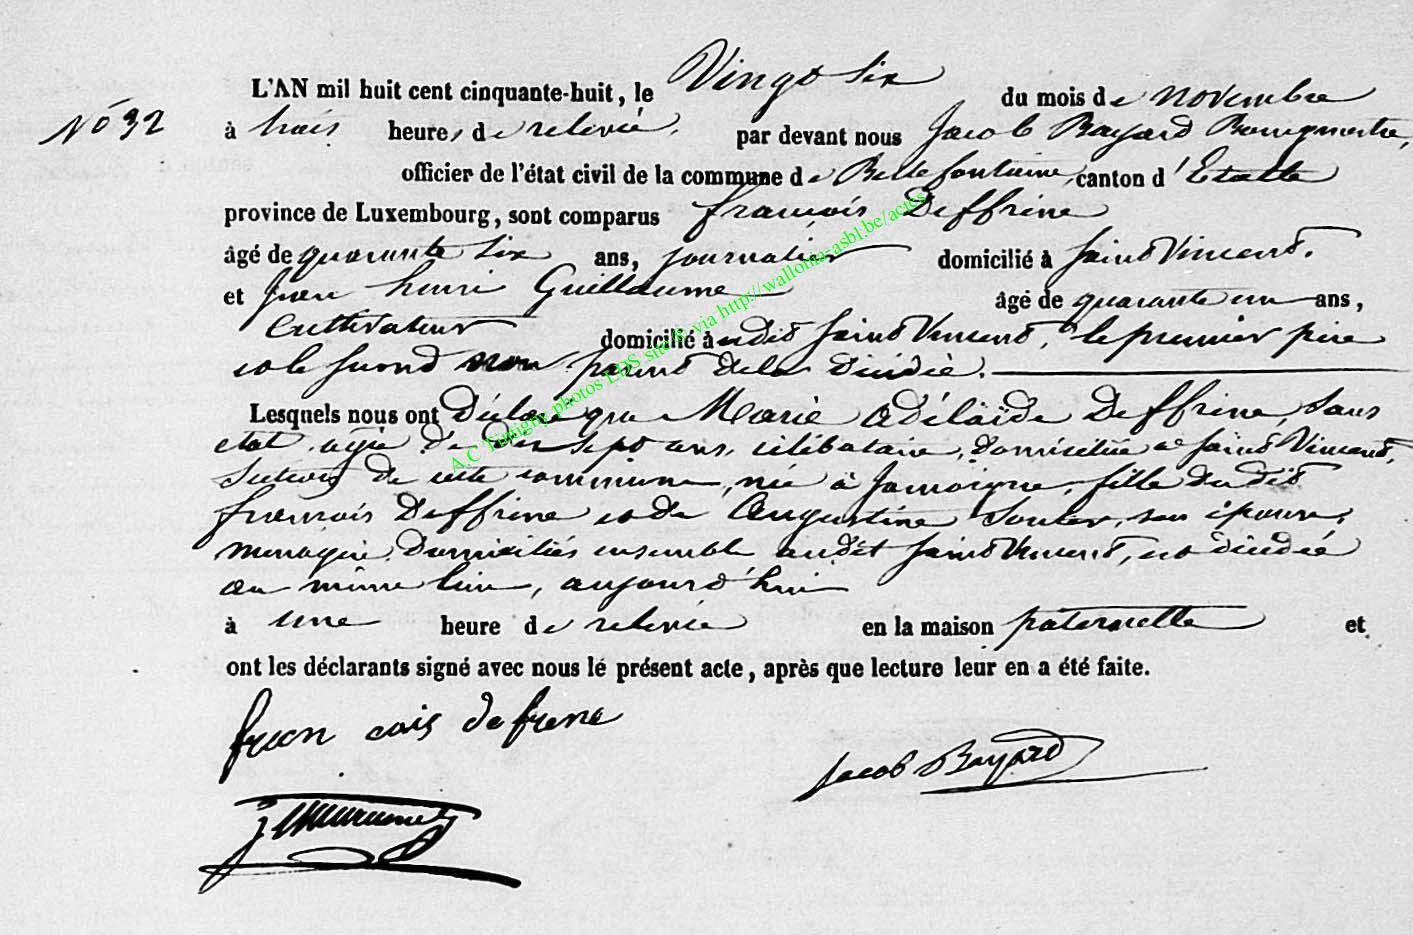 L'AN mil huit cent cinquante-huit, le Vingt six du mois de novembre
N° 32 à trois heures de relevée, par devant nous Jacob Bayard Bourgmestre,
officier de l'état civil de la commune de Bellefontaine, canton d'Etalle
province de Luxembourg, sont comparus françois Deffrine
âgé de quarante six ans, journalier domicilié à Saint Vincent.
et Jean henri Guillaume âgé de quarante un ans,
cultivateur domicilié audit Saint Vincent, le premier père
et le second non parent de la décédée.
Lesquels nous ont Déclaré que Marie Adélaïde Deffrine, sans
état, agée de dix sept ans, célibataire, domiciliée à Saint Vincent,
Section de cette commune, née à Jamoigne, fille du dit
françois Deffrine et de Augustine Souter, son épouse,
menagère, Domiciliés ensemble audit Saint Vincent, est décédée
au même lieu, aujourd'hui
à une heure de relevée en la maison paternelle et
ont les déclarants signé avec nous lé présent acte, après que lecture leur en a été faite.
francois defrene
Jacob Bayard
A.C Tintigny photos EDS site & via http://wallonia-asbl.be/actes